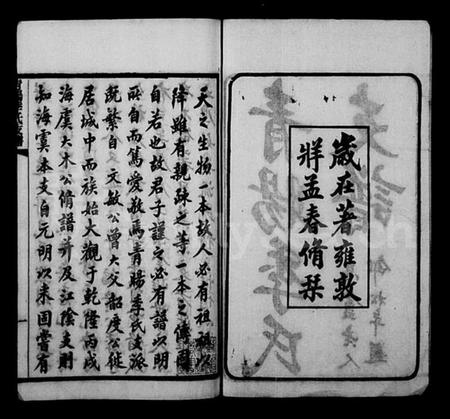 歲在著雍敦
牂孟春脩栞
天之生物一本故人必有祖祖以
降雖有親疎之等一本之傳固
自若也故君子謹之必有譜以明
所自而篤愛敬焉青暘季氏支派
旣繁自文敏公曾大父韶度公徙
居城中而族始大觀于乾隆丙戌
海虞大木公脩譜幷及江陰支則
知海虞本支自元明以來固嘗有